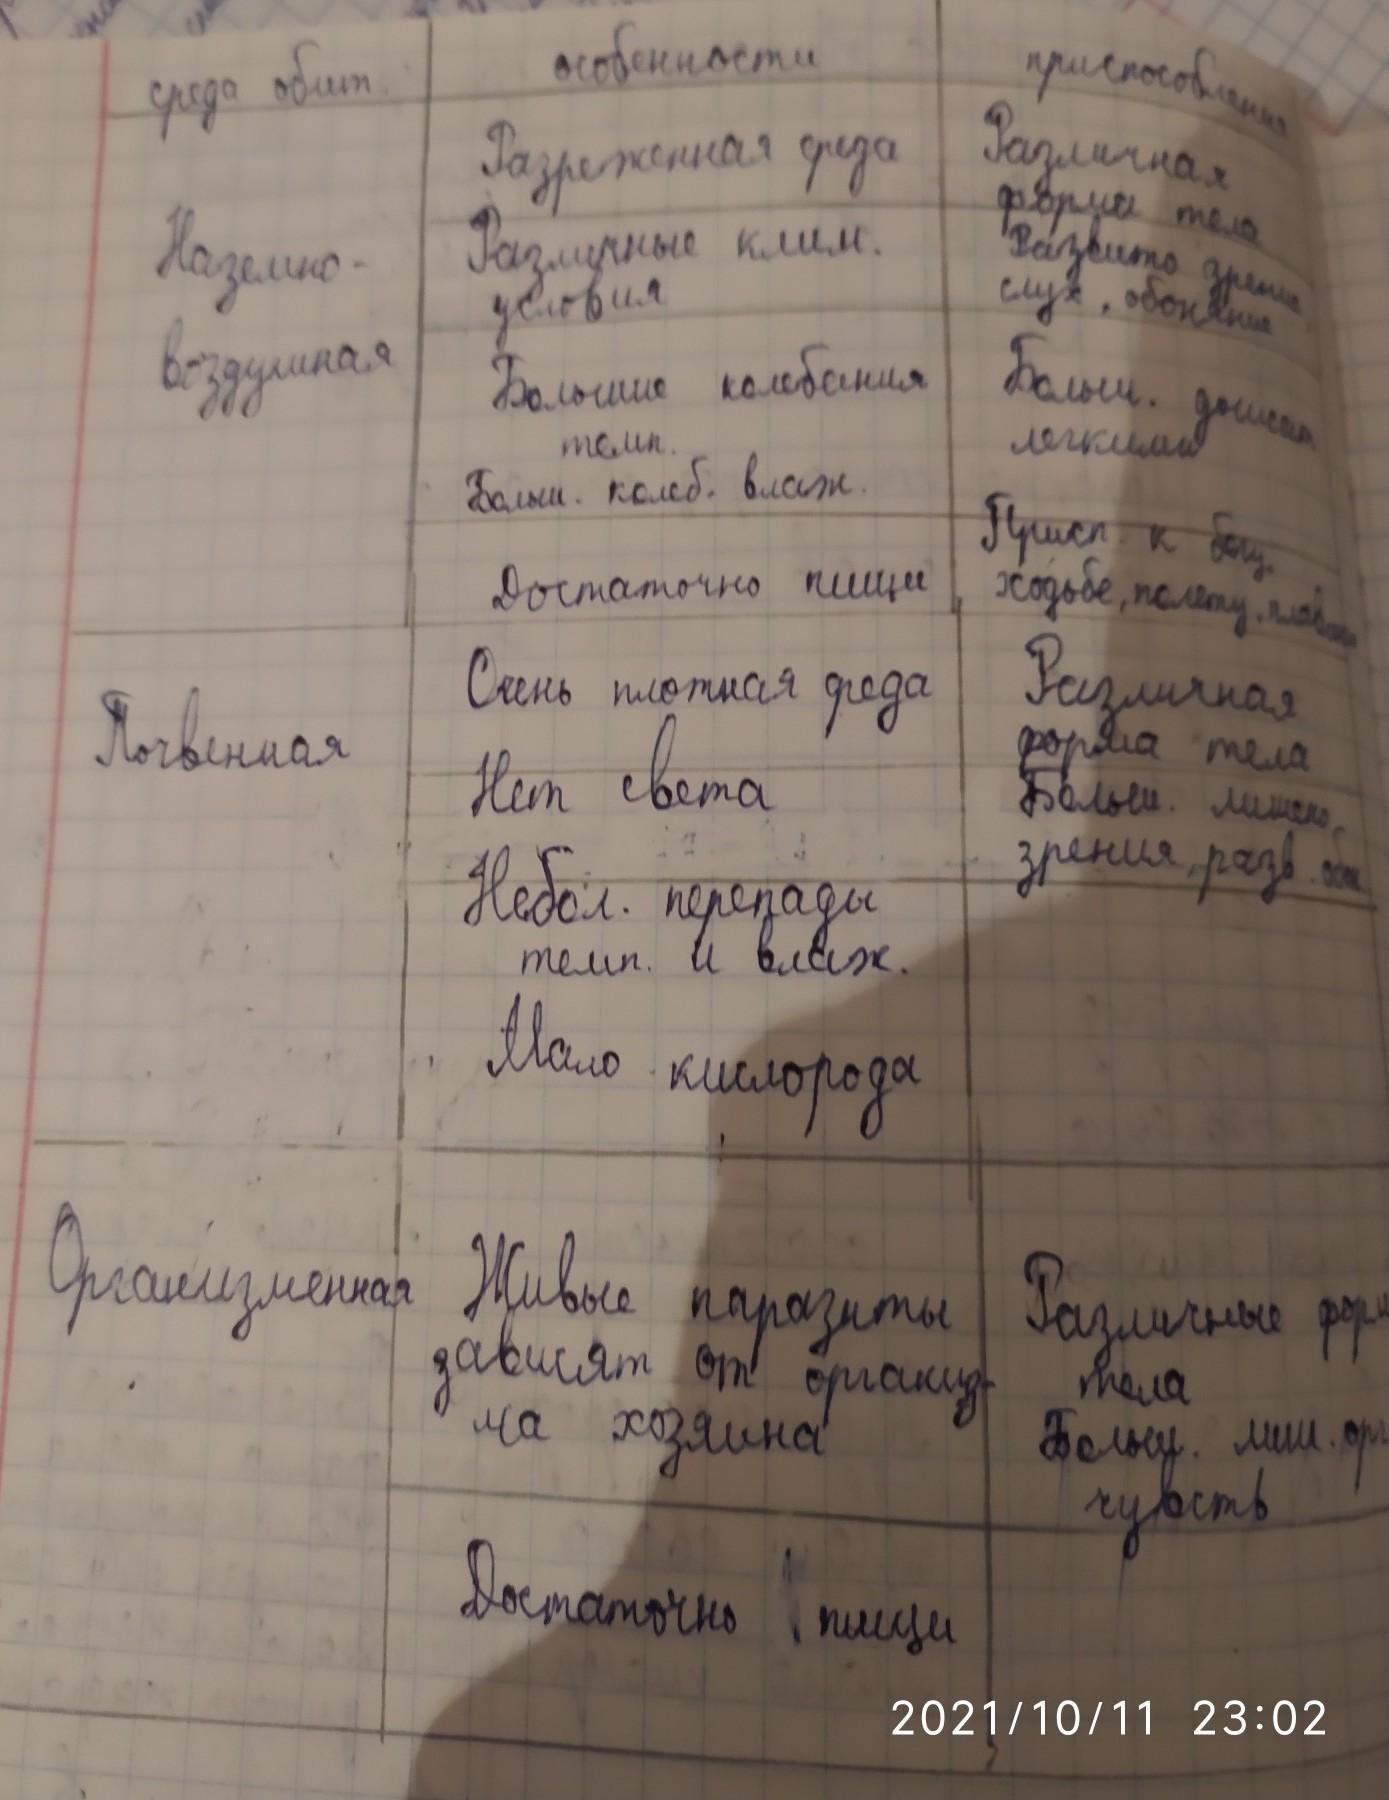 среда обит.
особенности
приспособления
Наземно-
воздушная
Разреженная среда
Различные клим.
условия
Большие колебания
темп.
Больш. колеб. влаж.
Достаточно пищи
Различная
форма тела
Развито зрение,
слух, обоняние
Больш. дышат
легкими
Присп. к бегу,
ходьбе, полету,
Почвенная
Очень плотная среда
Нет света
Небол. перепады
темп. и влаж.
Мало кислорода
Различная
форма тела
Больш. лишено,
зрения, разв. обон
Организменная
Живые паразиты
зависят от организ-
ма хозяина
Достаточно пищи
Различные форм
тела
Больш. лиш. орг
чувств
2021/10/11 23:02